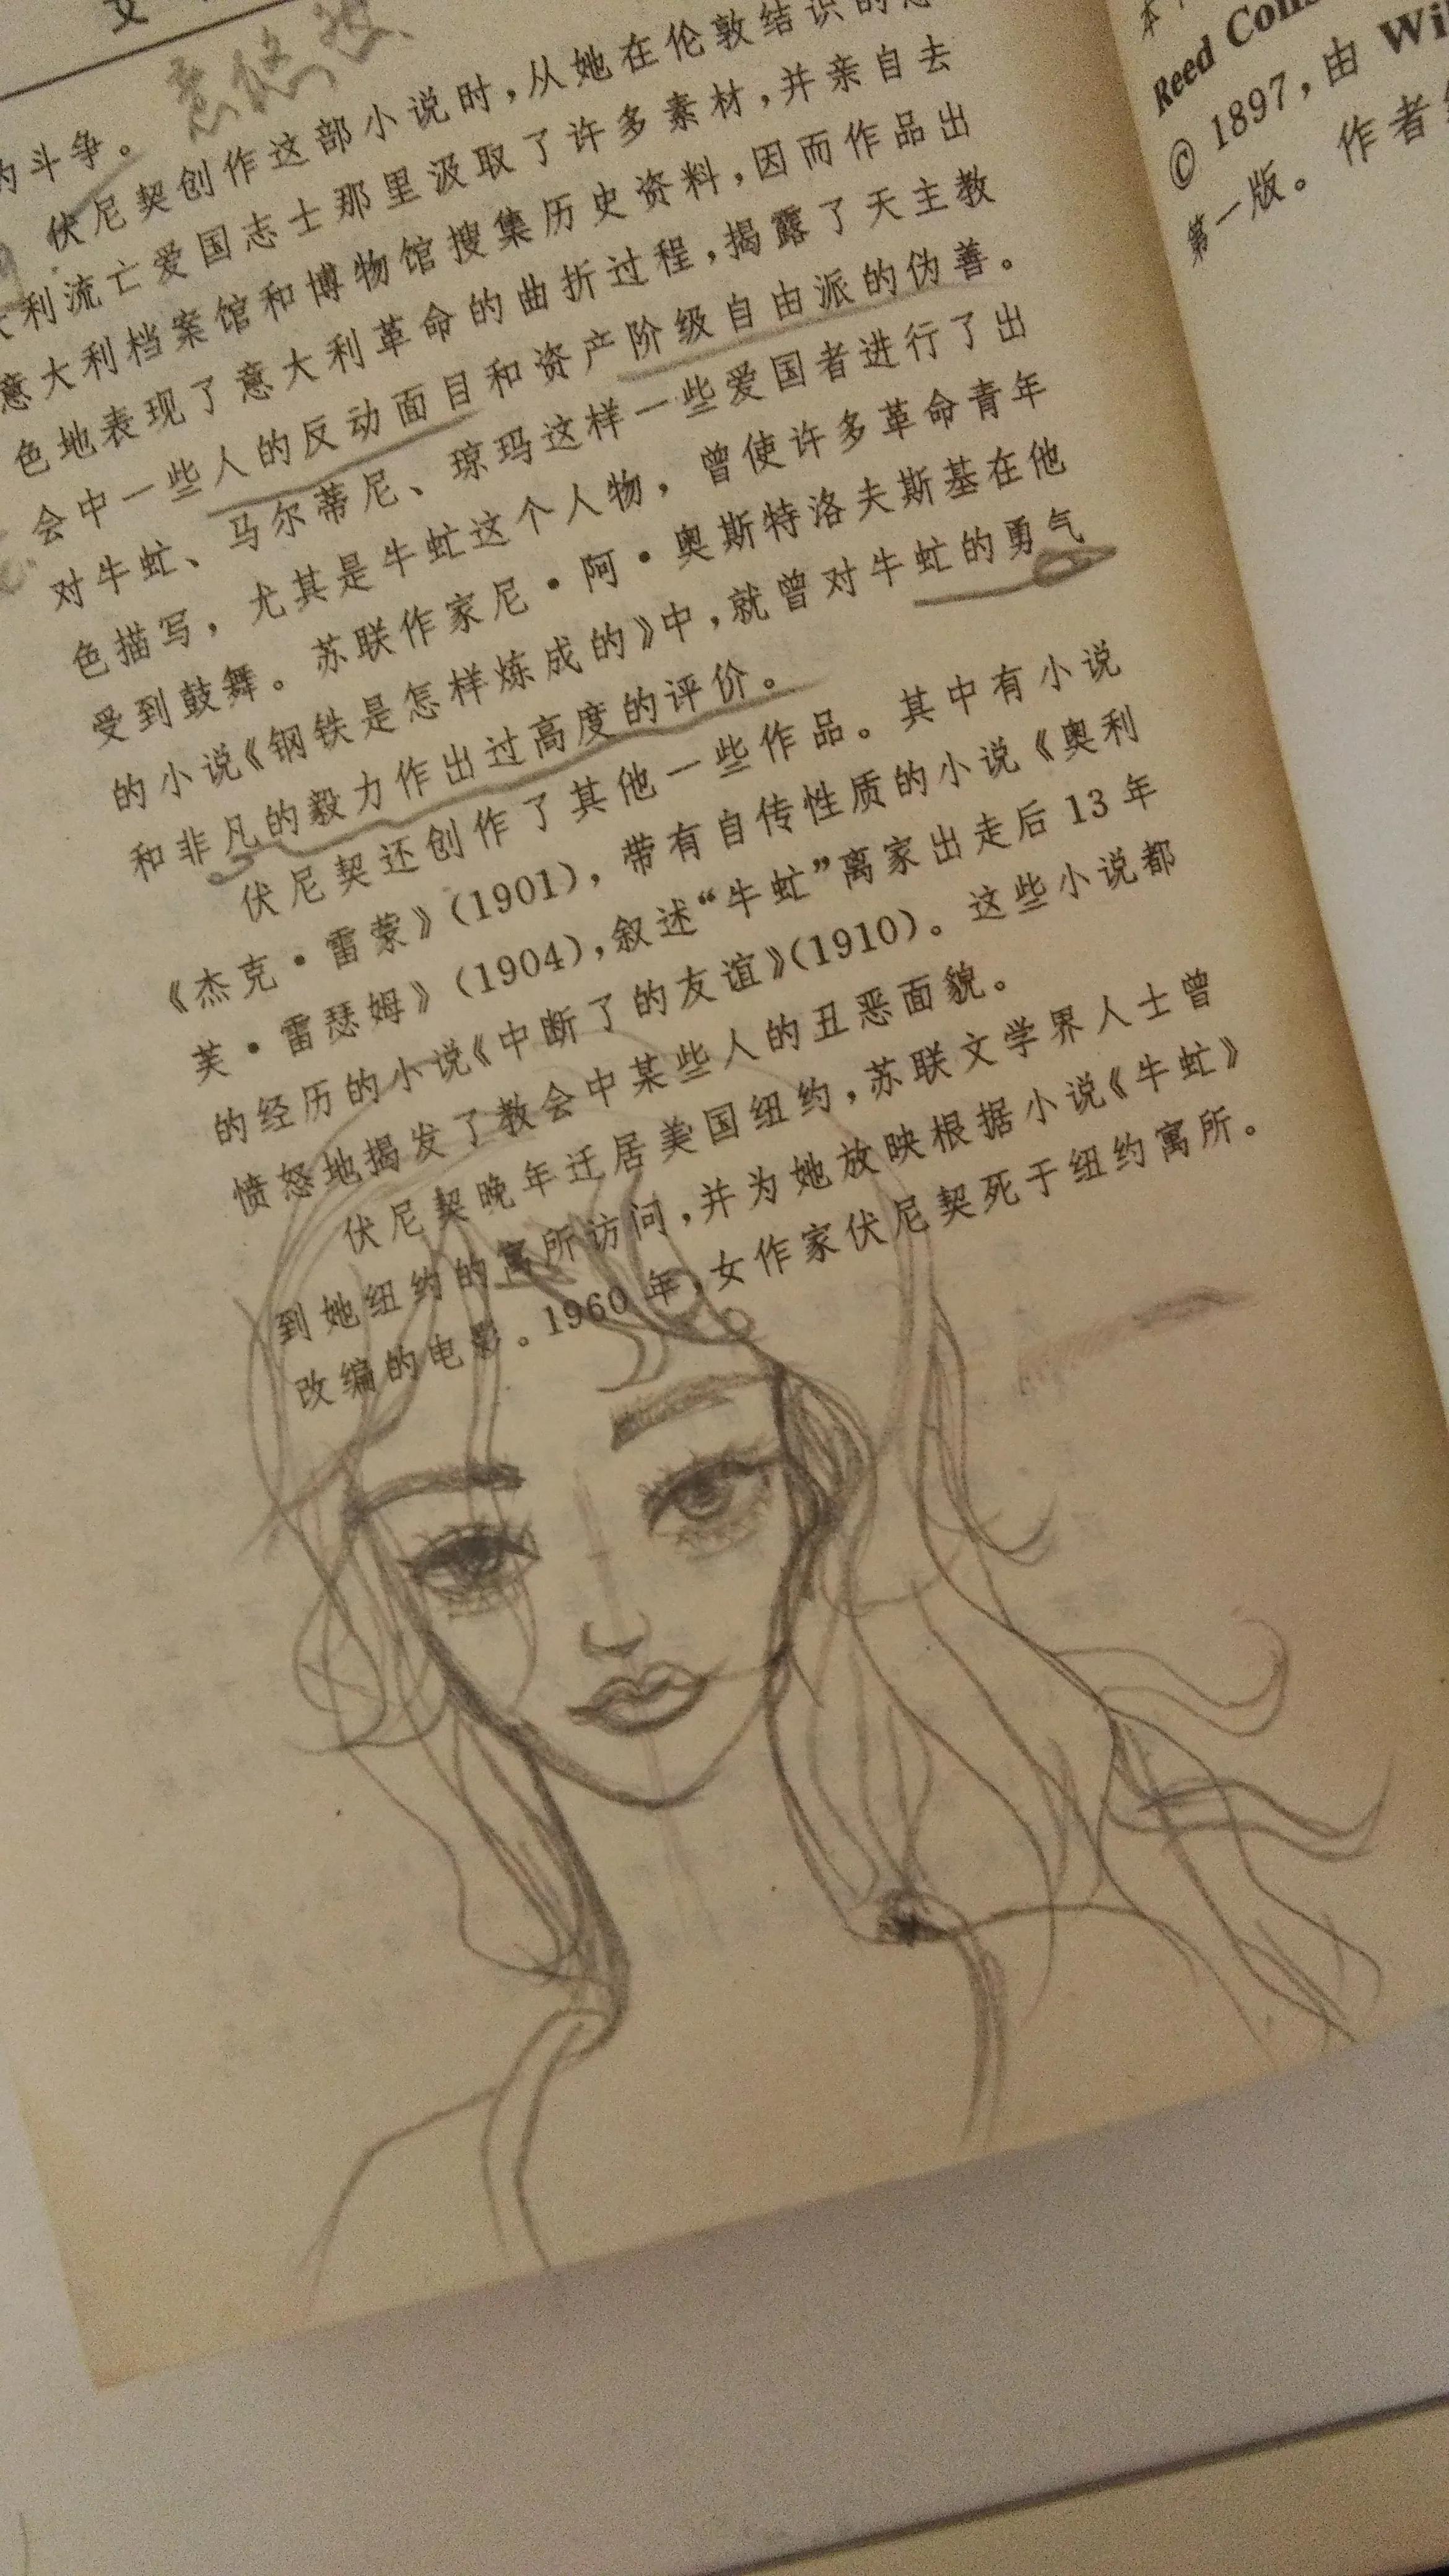 的斗争。
伏尼契创作这部小说时，从她在伦敦结识的意
大利流亡爱国志士那里汲取了许多素材，并亲自去
意大利档案馆和博物馆搜集历史资料，因而作品出
色地表现了意大利革命的曲折过程，揭露了天主教
会中一些人的反动面目和资产阶级自由派的伪善。
对牛虻、马尔蒂尼、琼玛这样一些爱国者进行了出
色描写，尤其是牛虻这个人物，曾使许多革命青年
受到鼓舞。苏联作家尼·阿·奥斯特洛夫斯基在他
的小说《钢铁是怎样炼成的》中，就曾对牛虻的勇气
和非凡的毅力作出过高度的评价。
伏尼契还创作了其他一些作品。其中有小说
《杰克·雷蒙》（1901），带有自传性质的小说《奥利
芙·雷瑟姆》（1904），叙述“牛虻”离家出走后13年
的经历的小说《中断了的友谊》（1910）。这些小说都
愤怒地揭发了教会中某些人的丑恶面貌。
伏尼契晚年迁居美国纽约，苏联文学界人士曾
到她纽约的寓所访问，并为她放映根据小说《牛虻》
改编的电影。1960年，女作家伏尼契死于纽约寓所。
本
Reed
© 1897，由
第一版。作者